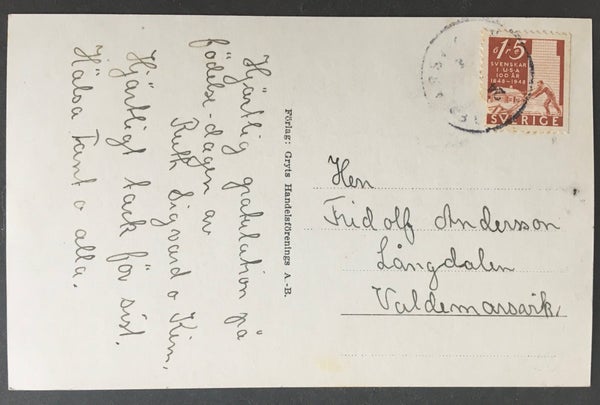 Hjärtlig gratulation på
födelse-dagen av
Ruth Sigvard o Kim.
Hjärtligt tack för sist.
Hälsa Tant o alla.
Förlag: Gryts Handelsförenings A.-B.
15
SVENSKAR
I USA
100 ÅR
1848-1948
SVERIGE
Herr
Fridolf Andersson
Långdalen
Valdemarsvik,